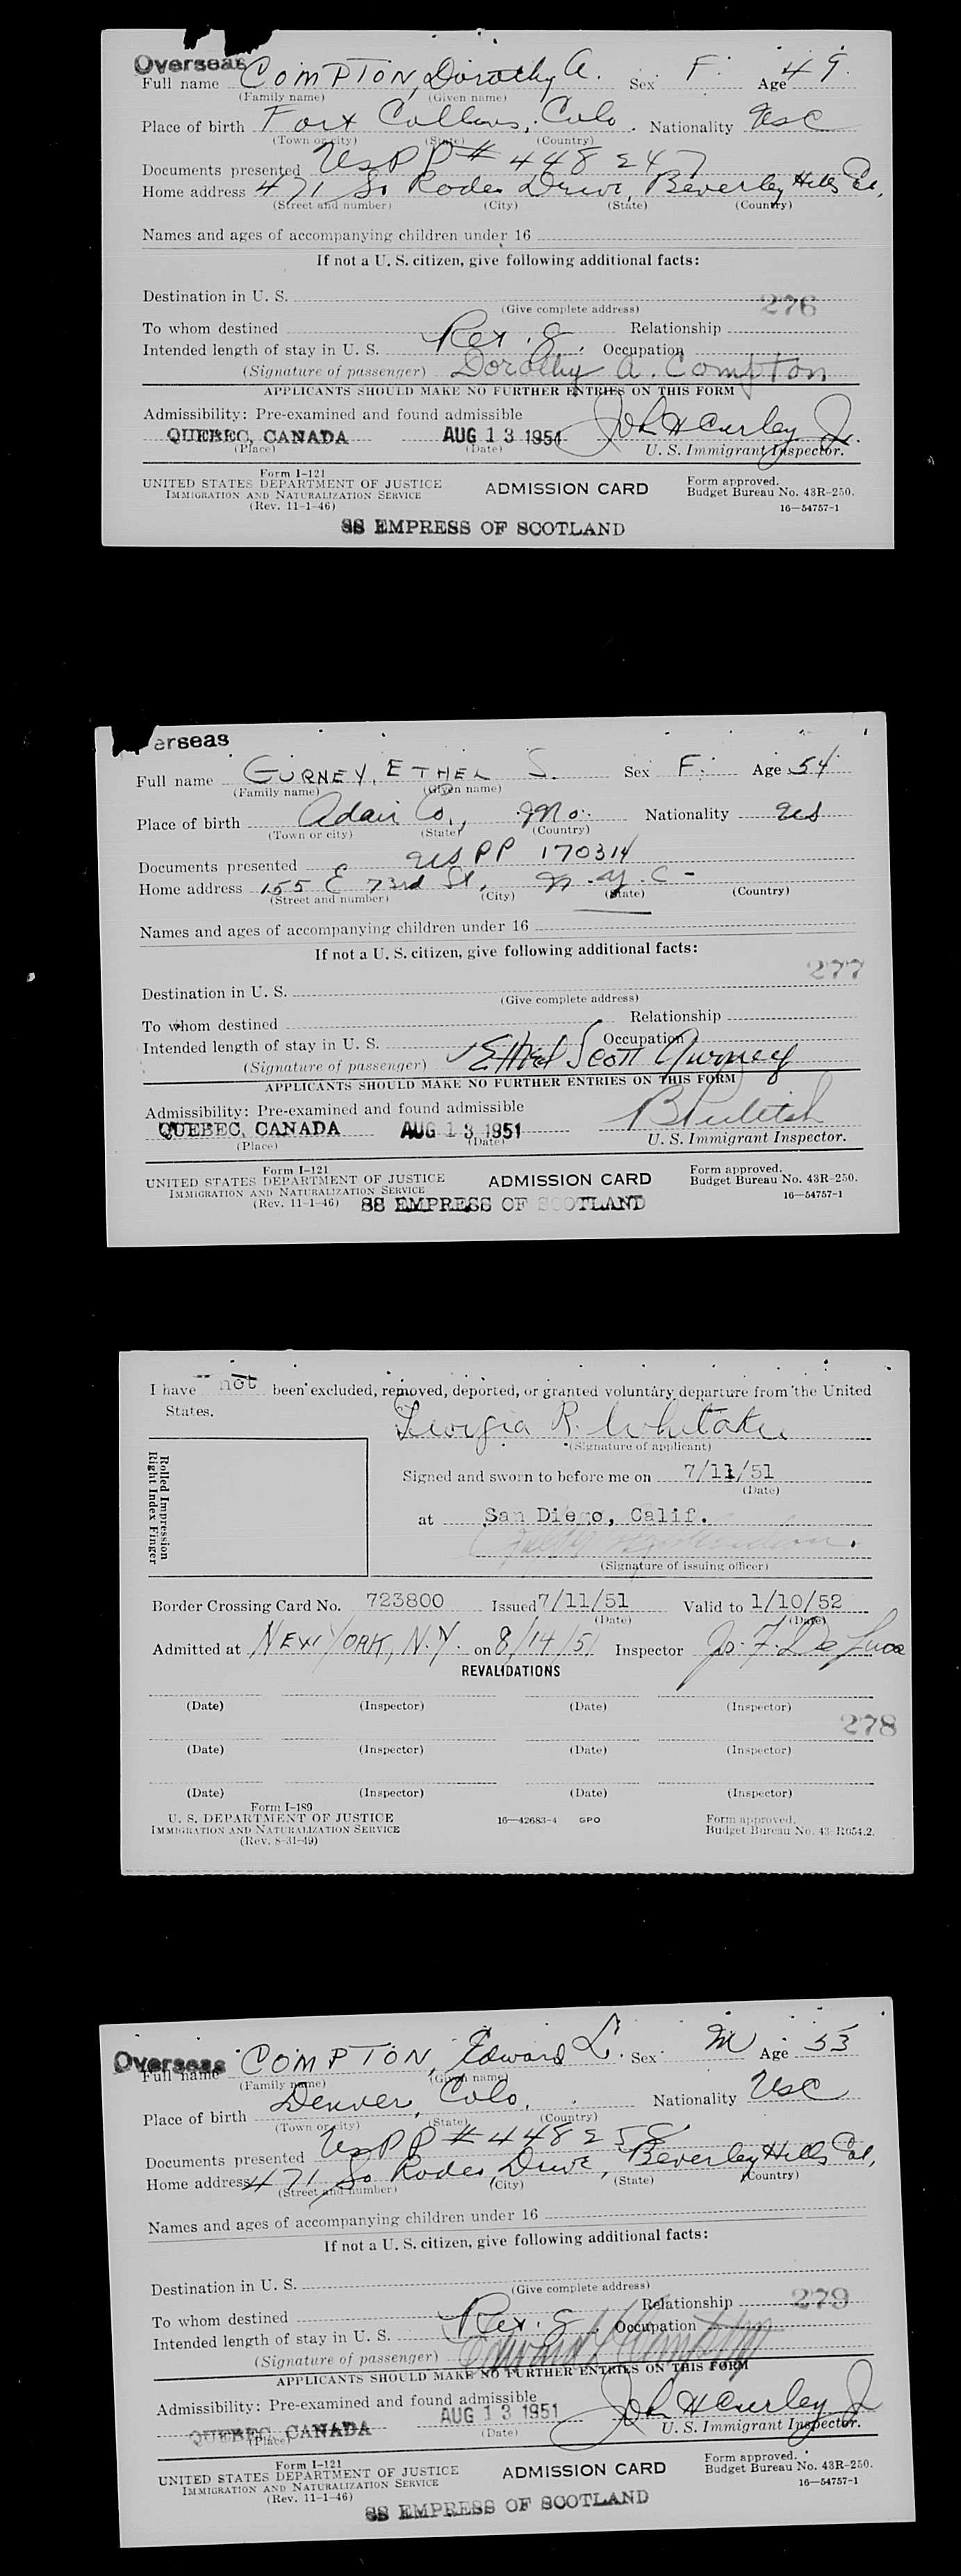 Overseas
Full name COMPTON, Dorothy A. Sex F. Age 49.
(Family name) (Given name)
Place of birth Fort Collins, Colo. Nationality USC
(Town or city) (State) (Country)
Documents presented US PP # 448247
Home address 471 So Rodeo Drive, Beverley Hills Cal,
(Street and number) (City) (State) (Country)
Names and ages of accompanying children under 16
If not a U. S. citizen, give following additional facts:
Destination in U. S.
(Give complete address) 276
To whom destined Relationship
Intended length of stay in U. S. Occupation
(Signature of passenger) Dorothy A. Compton
APPLICANTS SHOULD MAKE NO FURTHER ENTRIES ON THIS FORM
Admissibility: Pre-examined and found admissible
QUEBEC, CANADA AUG 13 1951 John H Curley Jr.
(Place) (Date) U. S. Immigrant Inspector.
Form I-121
UNITED STATES DEPARTMENT OF JUSTICE ADMISSION CARD Form approved.
IMMIGRATION AND NATURALIZATION SERVICE Budget Bureau No. 43R-250.
(Rev. 11-1-46) 16—54757-1
SS EMPRESS OF SCOTLAND
erseas
Full name GURNEY, ETHEL S. Sex F. Age 54
(Family name) (Given name)
Place of birth Adair Co., Mo. Nationality US
(Town or city) (State) (Country)
Documents presented US PP 170314
Home address 155 E 73rd St, N.Y.C -
(Street and number) (City) (State) (Country)
Names and ages of accompanying children under 16
If not a U. S. citizen, give following additional facts:
277
Destination in U. S.
(Give complete address)
To whom destined Relationship
Intended length of stay in U. S. Occupation
(Signature of passenger) Ethel Scott Gurney
APPLICANTS SHOULD MAKE NO FURTHER ENTRIES ON THIS FORM
Admissibility: Pre-examined and found admissible
QUEBEC, CANADA AUG 13 1951
(Place) (Date) U. S. Immigrant Inspector.
Form I-121
UNITED STATES DEPARTMENT OF JUSTICE ADMISSION CARD Form approved.
IMMIGRATION AND NATURALIZATION SERVICE Budget Bureau No. 43R-250.
(Rev. 11-1-46) 16—54757-1
SS EMPRESS OF SCOTLAND
I have not been excluded, removed, deported, or granted voluntary departure from the United
States.
Georgia R. Whitaker
(Signature of applicant)
Rolled Impression
Right Index Finger
Signed and sworn to before me on 7/11/51
(Date)
at San Diego, Calif.
(Signature of issuing officer)
Border Crossing Card No. 723800 Issued 7/11/51 Valid to 1/10/52
(Date) (Date)
Admitted at NEW YORK, N.Y. on 8/14/51 Inspector Jo. F. De Luca
REVALIDATIONS
(Date) (Inspector) (Date) (Inspector)
278
(Date) (Inspector) (Date) (Inspector)
(Date) (Inspector) (Date) (Inspector)
Form I-189
U. S. DEPARTMENT OF JUSTICE 16—42683-4 GPO Form approved.
IMMIGRATION AND NATURALIZATION SERVICE Budget Bureau No. 43-R054.2.
(Rev. 8-31-49)
Overseas
Full name COMPTON, Edward L. Sex M Age 53
(Family name) (Given name)
Place of birth Denver, Colo. Nationality USC
(Town or city) (State) (Country)
Documents presented US PP # 448258
Home address 471 So Rodeo Drive, Beverley Hills Cal,
(Street and number) (City) (State) (Country)
Names and ages of accompanying children under 16
If not a U. S. citizen, give following additional facts:
Destination in U. S.
(Give complete address)
To whom destined Relationship 279
Intended length of stay in U. S. Occupation
(Signature of passenger) Edward L Compton
APPLICANTS SHOULD MAKE NO FURTHER ENTRIES ON THIS FORM
Admissibility: Pre-examined and found admissible
QUEBEC, CANADA AUG 13 1951 John H Curley Jr
(Place) (Date) U. S. Immigrant Inspector.
Form I-121
UNITED STATES DEPARTMENT OF JUSTICE ADMISSION CARD Form approved.
IMMIGRATION AND NATURALIZATION SERVICE Budget Bureau No. 43R-250.
(Rev. 11-1-46) 16—54757-1
SS EMPRESS OF SCOTLAND